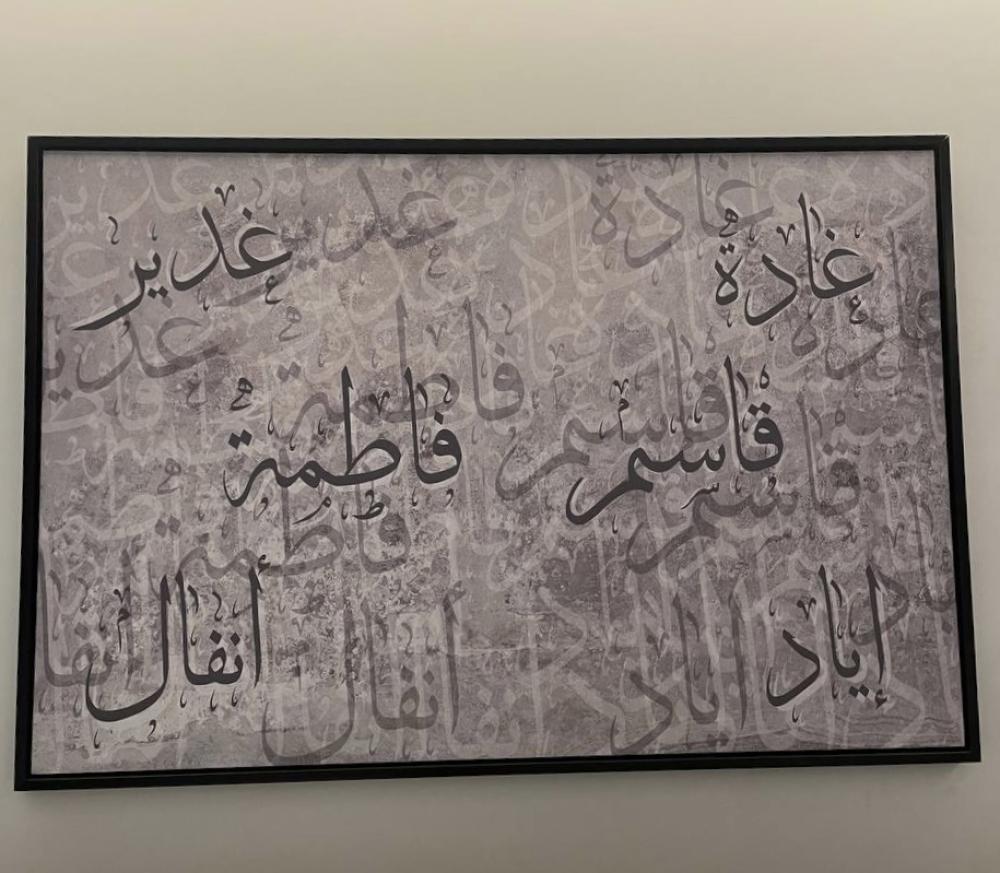 غادة غدير
قاسم فاطمة
إياد أنفال